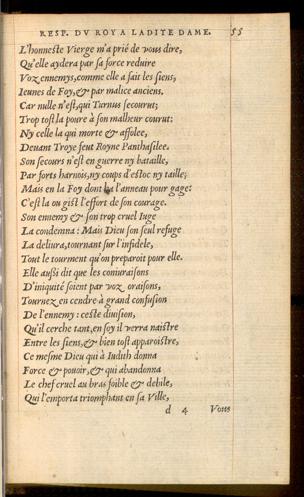 RESP. DV ROY A LADITE DAME. 55
L'honneste Vierge m'a prié de vous dire,
Qu'elle aydera par sa force reduire
Voz ennemys, comme elle a fait les siens,
Ieunes de Foy, & par malice anciens.
Car nulle n'est, qui Turnus secourut;
Trop tost la poure à son malheur courut:
Ny celle la qui morte & affolee,
Deuant Troye feut Royne Panthasilee.
Son secours n'est en guerre ny bataille,
Par forts harnois, ny coups d'estoc ny taille;
Mais en la Foy dont ha l'anneau pour gage:
C'est la ou gist l'effort de son courage.
Son ennemy & son trop cruel Iuge
La condemna: Mais Dieu son seul refuge
La deliura, tournant sur l'infidele,
Tout le tourment qu'on preparoit pour elle.
Elle aussi dit que les coniuraisons
D'iniquité soient par voz oraisons,
Tournez en cendre à grand confusion
De l'ennemy: ceste diuision,
Qu'il cerche tant, en soy il verra naistre
Entre les siens, & bien tost apparoistre,
Ce mesme Dieu qui à Iudith donna
Force & pouoir, & qui abandonna
Le chef cruel au bras foible & debile,
Qui l'emporta triomphant en sa Ville,
d 4 Vous